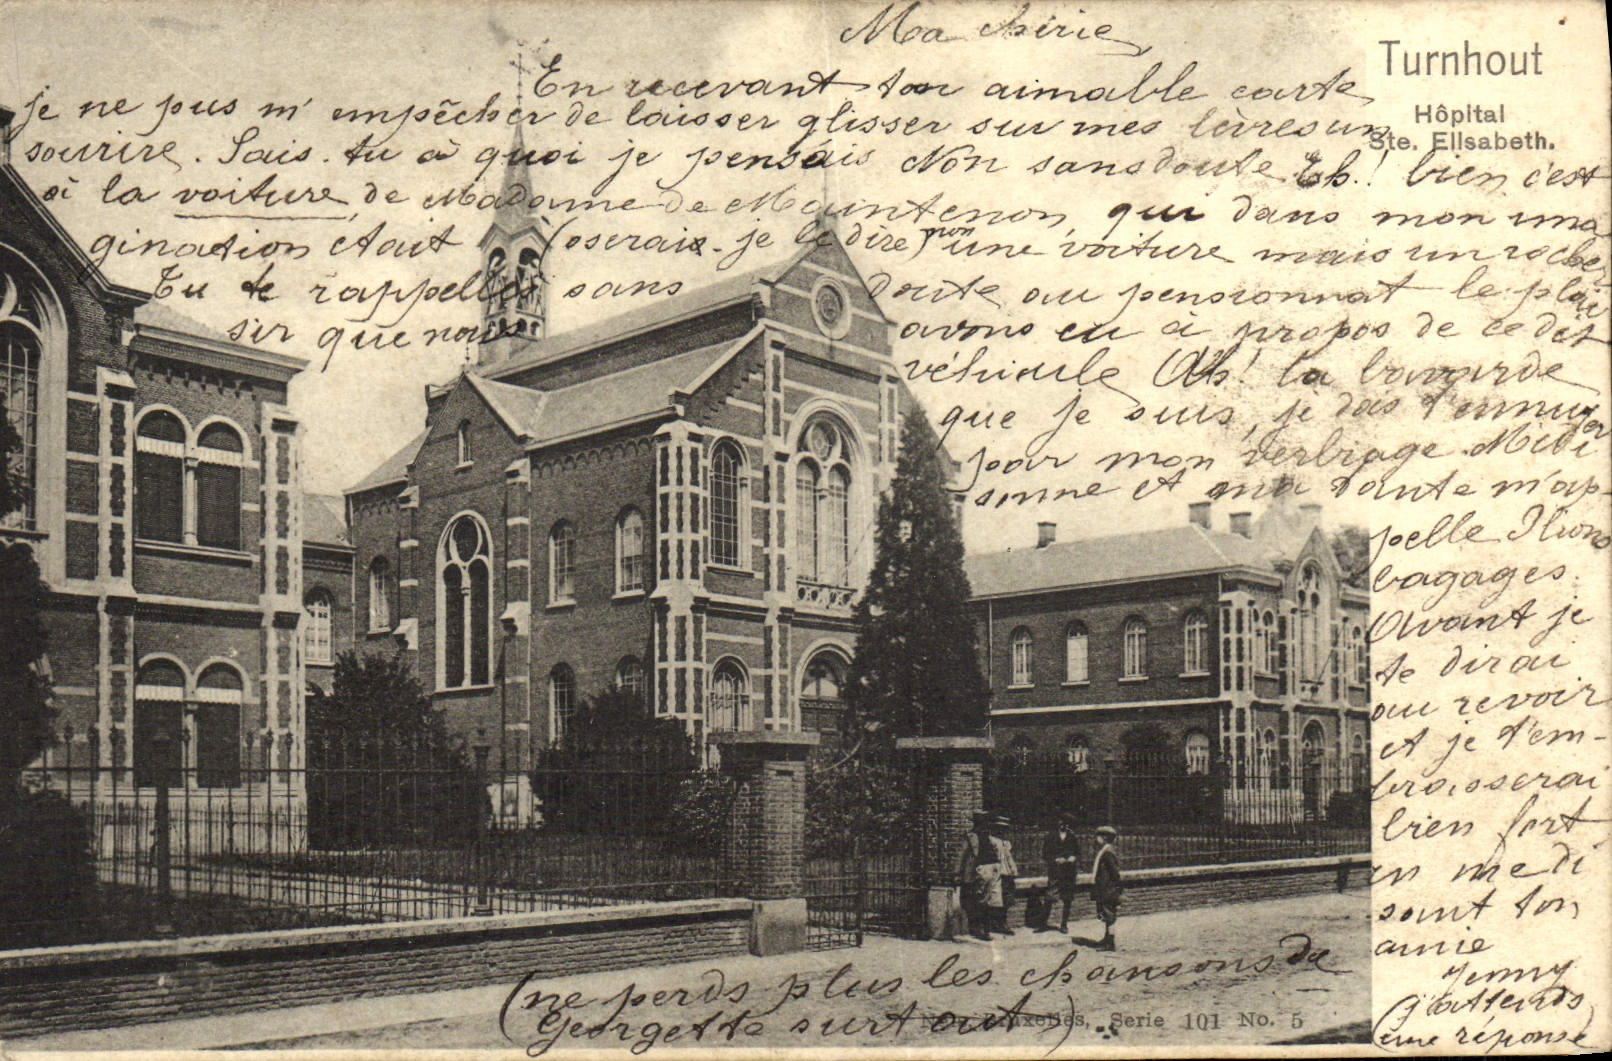 Turnhout
Hôpital
Ste. Elisabeth.
Ma chérie,
En recevant ton aimable carte,
je ne pus m'empêcher de laisser glisser sur mes lèvres un
sourire. Sais-tu à quoi je pensais Non sans doute. Eh! bien, c'est
à la voiture, de Madame de Maintenon, qui dans mon ima
gination était (oserais-je le dire) non une voiture mais un rocher
Tu te rappelles sans doute, au pensionnat le plai
sir que nous avons eu à propos de ce dit
véhicule Ah! la bavarde
que je suis, je dois t'ennuyer
par mon verbiage. Midi
sonne et ma tante m'ap-
pelle
bagages.
Avant je
te dirai
au revoir
et je t'em-
brasserai
bien fort
en me di
sant ton
amie
Jenny
(j'attends
une réponse)
(ne perds plus les chansons de
Georgette surtout)
Bruxelles, Serie 101 No. 5